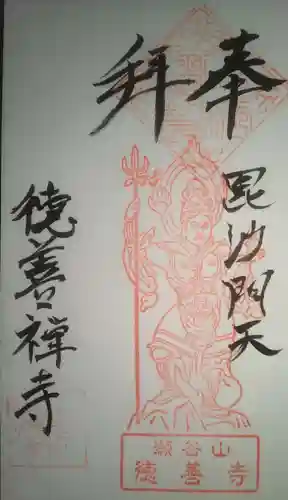 奉拜
毘沙門天
徳善禅寺
瀬谷山
徳善寺